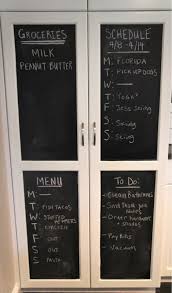 GROCERIES
MILK
PEANUT BUTTER
SCHEDULE
4/8 - 4/14
M: FLORIDA
T: PICK UP DOGS
W:
T: YOGA
F: Jess Skiing
S: Skiing
S: Skiing
MENU
M:
T: FISH TACOS
W: STUFFED PEPPERS
T: CHICKEN
F: OUT
S: OUT
S: PASTA
To Do:
- Clean Bathrooms
- Send Thank you Notes
- Order hardware + shades
- Pay Bills
- Vacuum